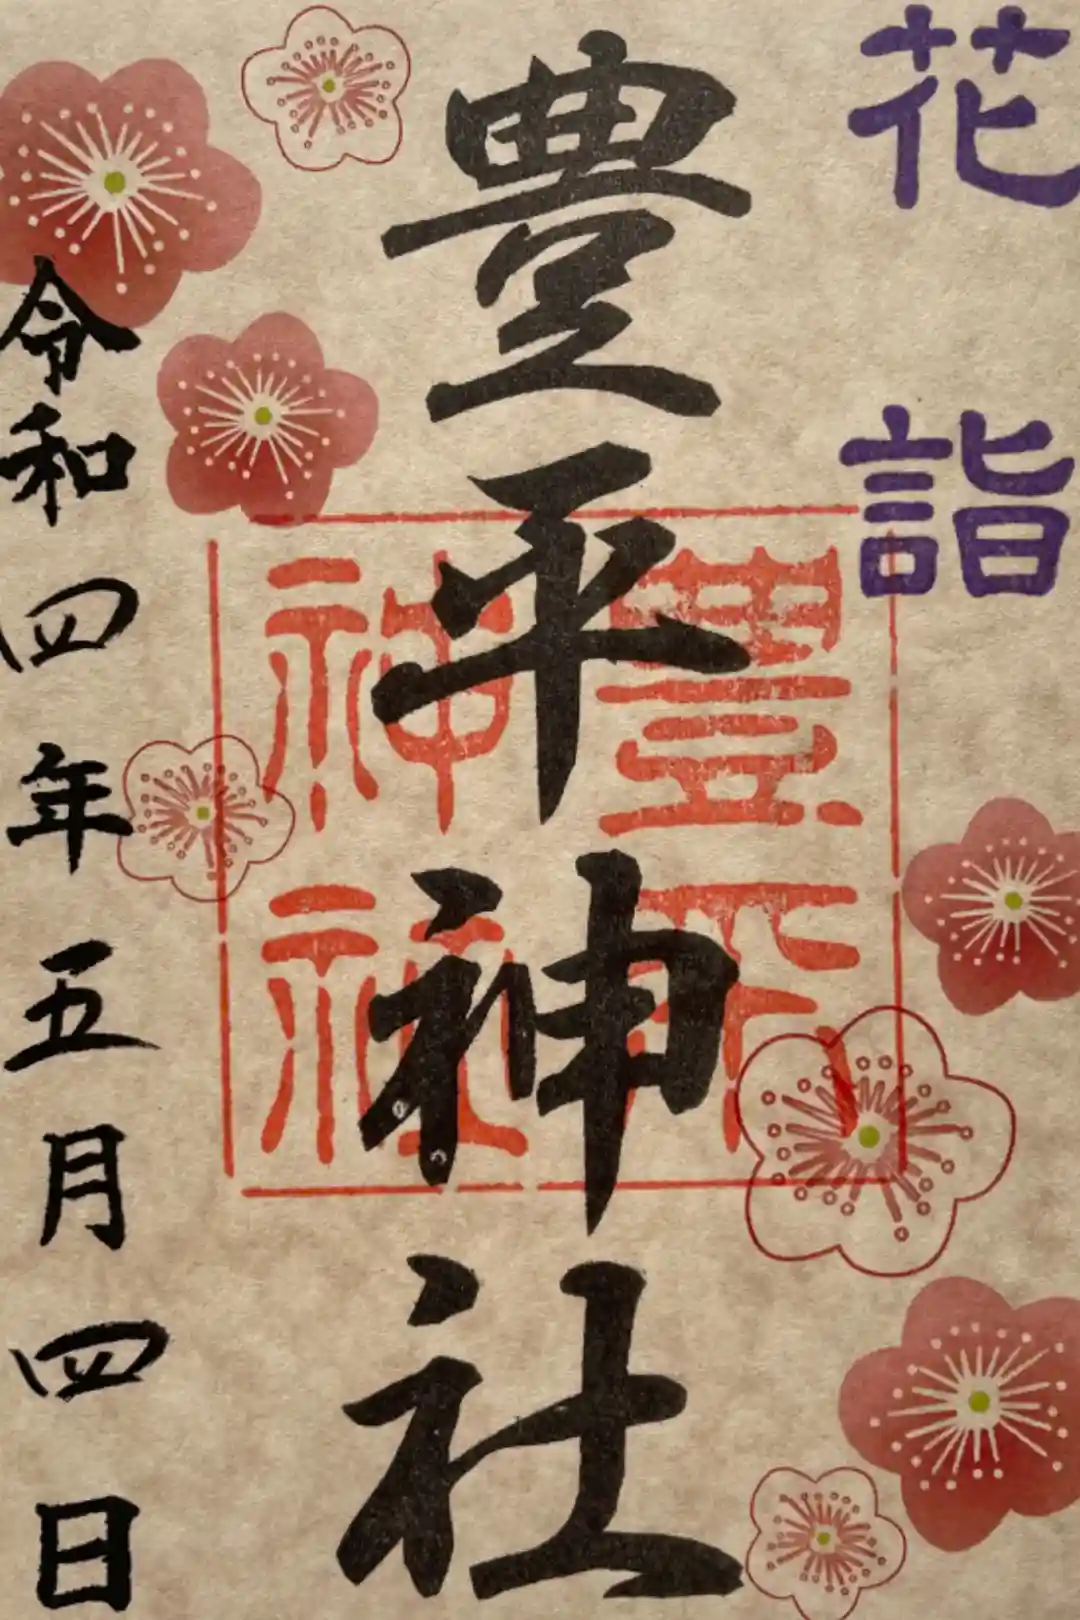 花詣
豊平神社
豊平
神社
令和四年五月四日